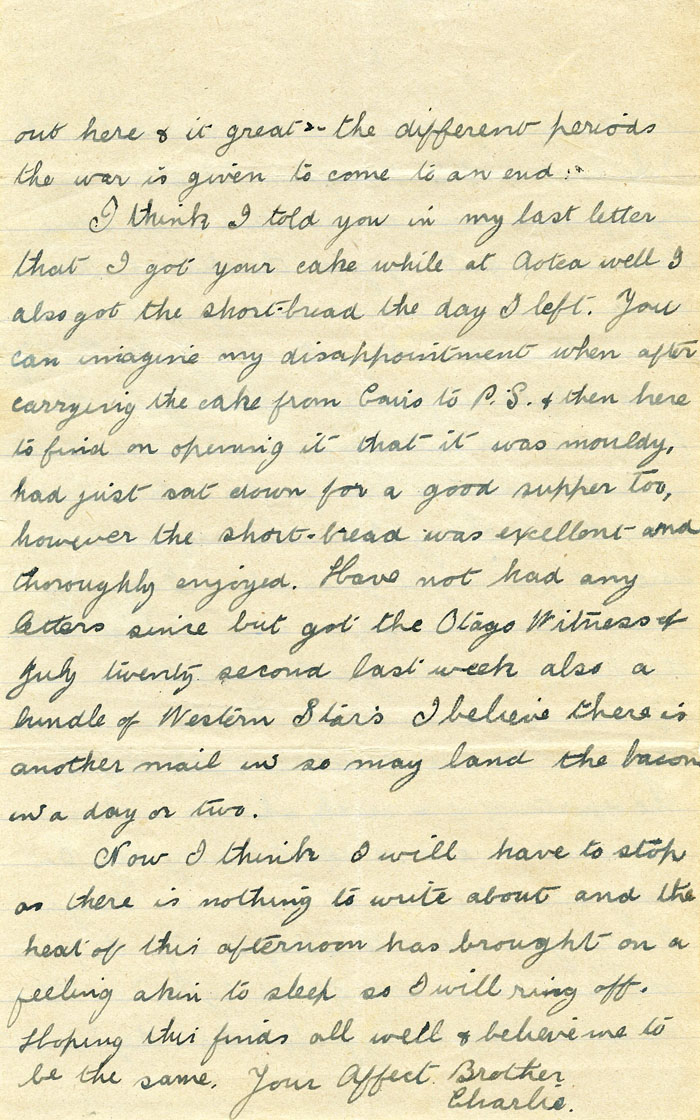 out here & it great :- the different periods
the war is given to come to an end.
I think I told you in my last letter
that I got your cake while at Aotea well I
also got the short-bread the day I left. You
can imagine my disappointment when after
carrying the cake from Cairo to P.S. & then here
to find on opening it that it was mouldy,
had just sat down for a good supper too,
however the short-bread was exellent and
thoroughly enjoyed. Have not had any
letters since but got the Otago Witness of
July twenty second last week also a
bundle of Western Stars I believe there is
another mail in so may land the bacon
in a day or two.
Now I think I will have to stop
as there is nothing to write about and the
heat of this afternoon has brought on a
feeling akin to sleep so I will ring off.
Hoping this finds all well & believe me to
be the same. Your Affect. Brother
Charlie.